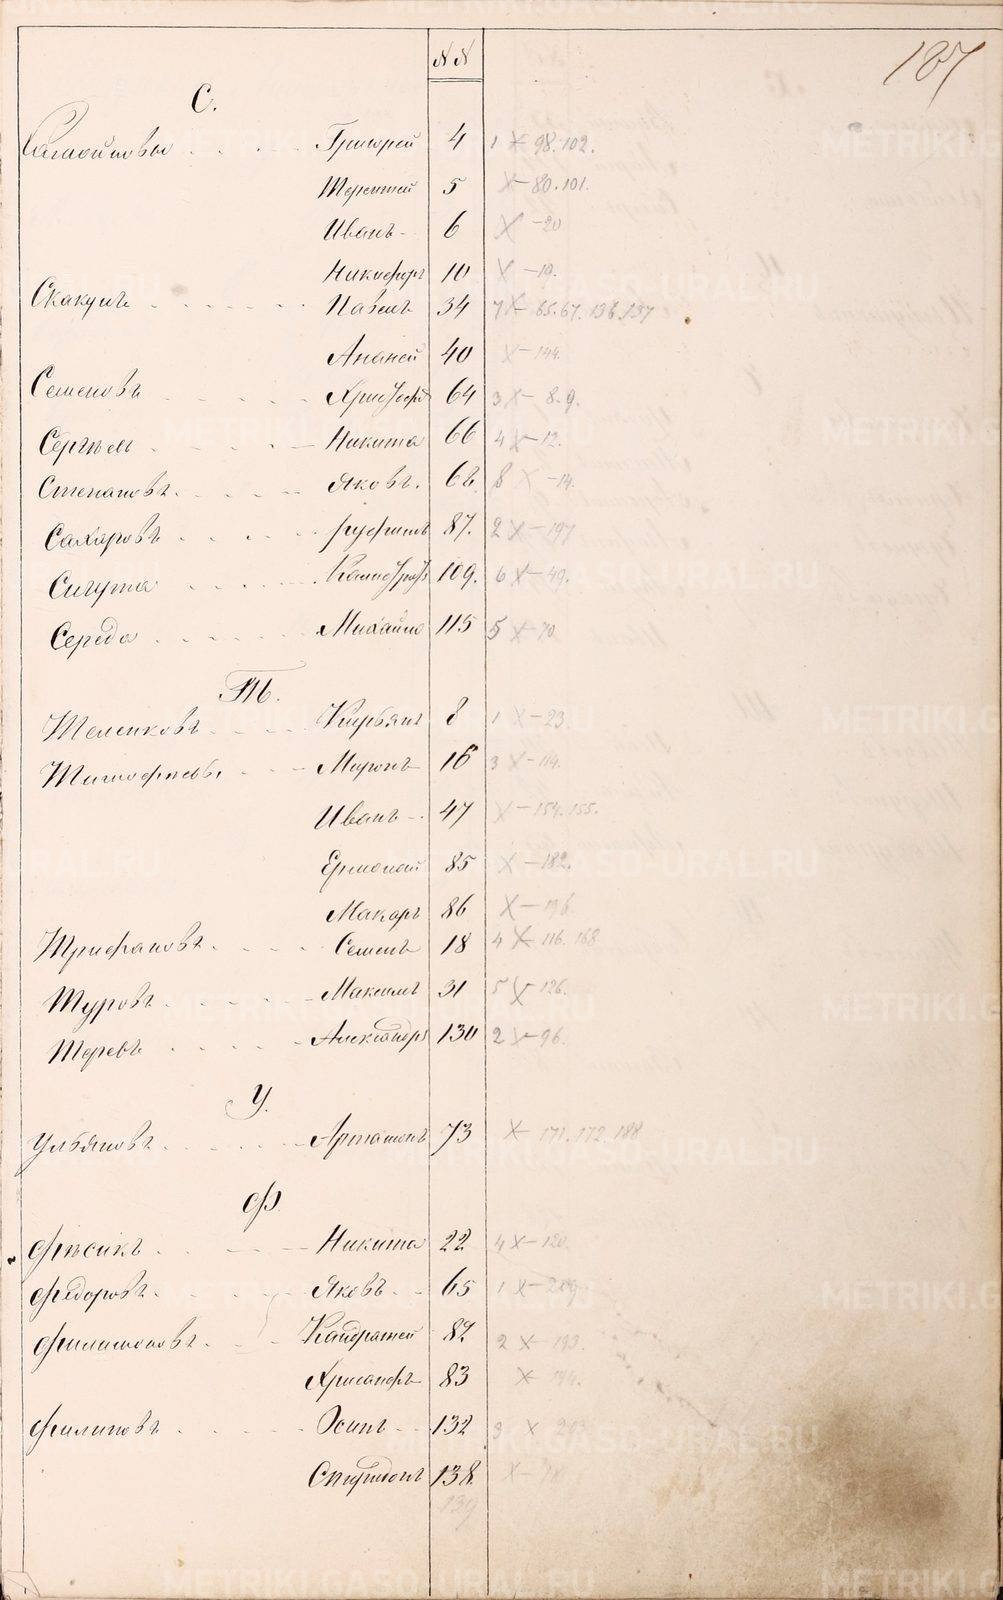 187
NN
С.
Григорей 4 1 X 98.102.
Терентей 5 X-80.101.
Иванъ 6 X-20
Никифоръ 10 X-19.
Скакунъ Павелъ 34 7 X 65.67.136.137
Ананей 40 X-144.
Семеновъ Христофоръ 64 3 X-8.9.
Сергѣевъ Никита 66 4 X-12.
Степановъ Яковъ. 68 8 X-14.
Сахаровъ Руфимъ 87. 2 X-197
Сигута 109. 6 X-49.
Середа Михайло 115 5 X-70
Т.
Теленковъ Кирьянъ 8 1 X-23
Тимофѣевъ Миронъ 16 3 X-114.
Иванъ 47 X-154.155.
Ермолай 85 X-182.
Макаръ 86 X-196
Трифановъ Семенъ 18 4 X 116.168
Туровъ Максимъ 31 5 X 126.
Теревъ Александръ 130 2 X-96.
У.
Ульяновъ Артамонъ 73 X 171.172.188
Ф.
Фѣсикъ Никита 22 4 X-120.
Федоровъ Яковъ 65 1 X-209
Филимоновъ Кандратей 82 2 X 193.
Хрисанфъ 83 X 194.
Филиповъ Осипъ 132 3 X
Спиридонъ 138 X-78
139
METRIKI.GASO-URAL.RU